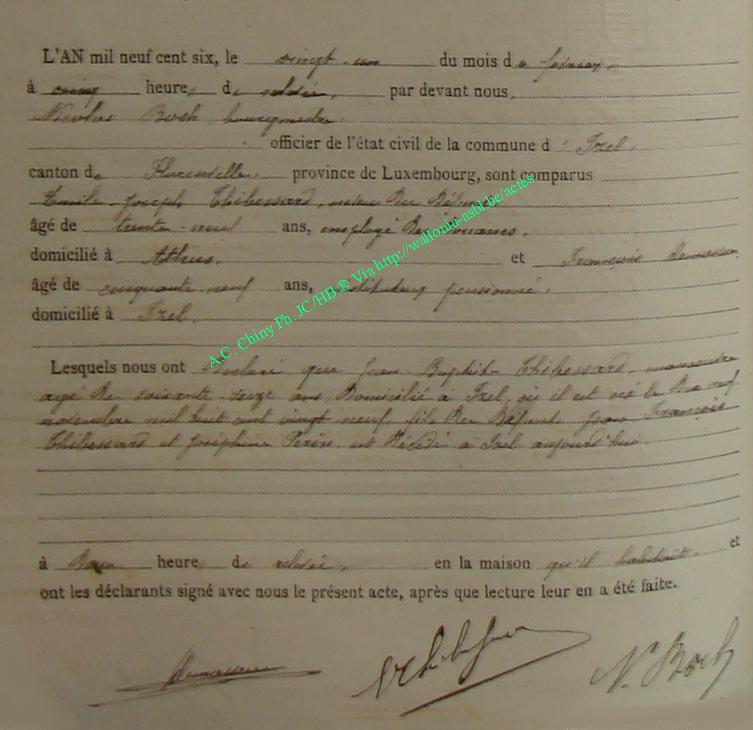 L'AN mil neuf cent six, le vingt-un du mois de février,
à cinq heures de relevée, par devant nous,
Nicolas Boch, bourgmestre
officier de l'état civil de la commune d'Izel,
canton de Florenville, province de Luxembourg, sont comparus
Emile-Joseph Thibessard, neveu du Défunt
âgé de trente-neuf ans, employé des Douanes,
domicilié à Athus, et François
âgé de cinquante-neuf ans, instituteur pensionné,
domicilié à Izel.
A.C. Chiny Ph. JC/HB ® Via http://wallonia-asbl.be/actes
Lesquels nous ont déclaré que Jean Baptiste Thibessard,
agé de soixante-seize ans Domicilié à Izel, où il est né le
novembre mil huit cent vingt-neuf, fils des Défunts Jean François
Thibessard et Joséphine Perin est Décédé à Izel aujourd'hui
à heures de relevée, en la maison qu'il habitait, et
ont les déclarants signé avec nous le présent acte, après que lecture leur en a été faite.
N. Boch